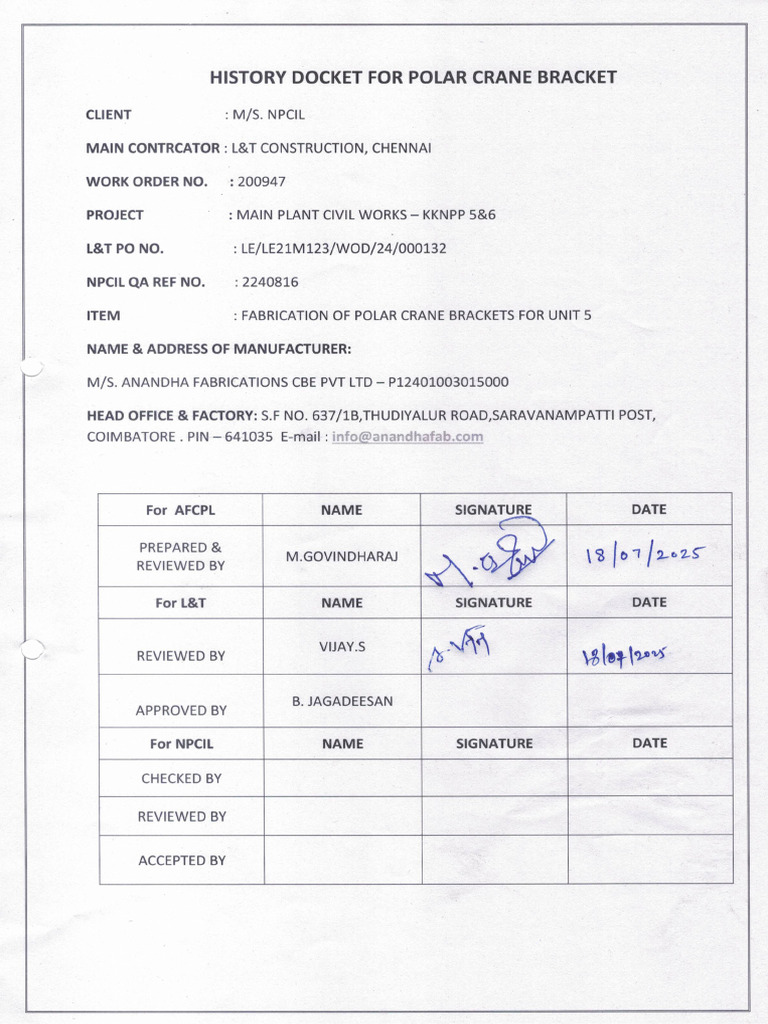 HISTORY DOCKET FOR POLAR CRANE BRACKET
CLIENT : M/S. NPCIL
MAIN CONTRCATOR : L&T CONSTRUCTION, CHENNAI
WORK ORDER NO. : 200947
PROJECT : MAIN PLANT CIVIL WORKS – KKNPP 5&6
L&T PO NO. : LE/LE21M123/WOD/24/000132
NPCIL QA REF NO. : 2240816
ITEM : FABRICATION OF POLAR CRANE BRACKETS FOR UNIT 5
NAME & ADDRESS OF MANUFACTURER:
M/S. ANANDHA FABRICATIONS CBE PVT LTD – P12401003015000
HEAD OFFICE & FACTORY: S.F NO. 637/1B,THUDIYALUR ROAD,SARAVANAMPATTI POST,
COIMBATORE . PIN – 641035 E-mail : info@anandhafab.com
For AFCPL NAME SIGNATURE DATE
PREPARED & REVIEWED BY M.GOVINDHARAJ 18/07/2025
For L&T NAME SIGNATURE DATE
REVIEWED BY VIJAY.S 18/07/2025
APPROVED BY B. JAGADEESAN
For NPCIL NAME SIGNATURE DATE
CHECKED BY
REVIEWED BY
ACCEPTED BY